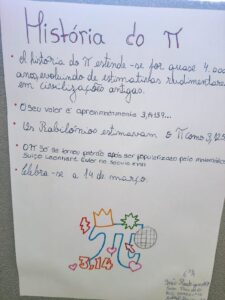 História do π
• A história do π estende-se por quase 4 000
anos, evoluindo de estimativas rudimentares
em civilizações antigas.
• O seu valor é aproximadamente 3,1415...
• Os Babilónios estimavam o π como 3,125
• O π só se tornou padrão após ser popularizado pelo matemático
suíço Leonhard Euler no século XVIII
• Celebra-se a 14 de março.
π
3.14
6ºA